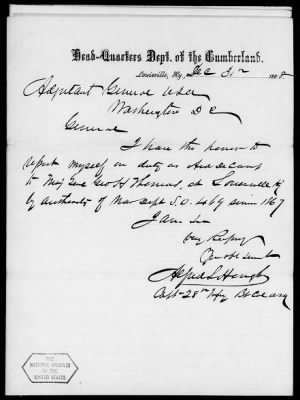 Head-Quarters Dept. of the Cumberland.
Louisville, Ky., Dec 31st 1868.
Adjutant General USA
Washington D C
General
I have the honor to
report myself on duty as Aid de Camp
to Maj Gen Geo H Thomas, at Louisville Ky
by authority of War Dept S.O. 469 series 1867
I am Sir
Very Respy
Your Obt Servt
Alfred L Hough
Capt 28th Infy Bt
THE
NATIONAL ARCHIVES
OF THE
UNITED STATES